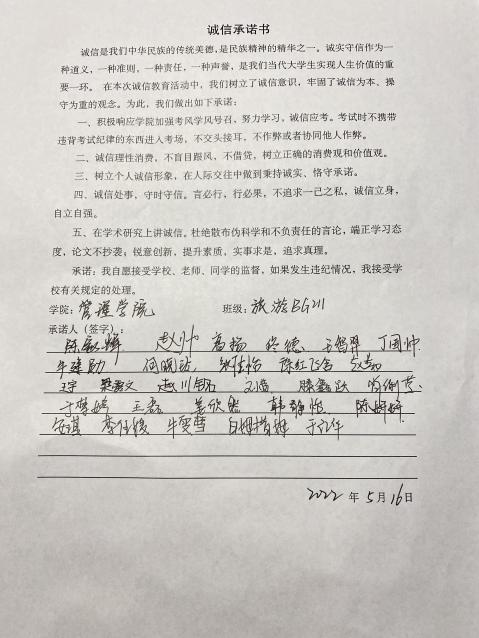 诚信承诺书
诚信是我们中华民族的传统美德，是民族精神的精华之一。诚实守信作为一
种道义，一种准则，一种责任，一种声誉，是我们当代大学生实现人生价值的重
要一环。在本次诚信教育活动中，我们树立了诚信意识，牢固了诚信为本、操
守为重的观念。为此，我们做出如下承诺：
一、积极响应学院加强考风学风号召，努力学习，诚信应考。考试时不携带
违背考试纪律的东西进入考场，不交头接耳，不作弊或者协同他人作弊。
二、诚信理性消费，不盲目跟风，不借贷，树立正确的消费观和价值观。
三、树立个人诚信形象，在人际交往中做到秉持诚实、恪守承诺。
四、诚信处事，守时守信。言必行，行必果，不追求一己之私，诚信立身，
自立自强。
五、在学术研究上讲诚信。杜绝散布伪科学和不负责任的言论，端正学习态
度，论文不抄袭；锐意创新，提升素质，实事求是，追求真理。
承诺：我自愿接受学校、老师、同学的监督，如果发生违纪情况，我接受学
校有关规定的处理。
学院：管理学院 班级：旅游BG211
承诺人（签字）：
赵帅 高扬 佟德 丁国帅
牛建勋 张佳怡
王宇 赵川 滕鑫跃
王磊 姜欣然 韩静怡 陈婷婷
安淇 李佳俊 牛雯慧
2022 年 5月16日